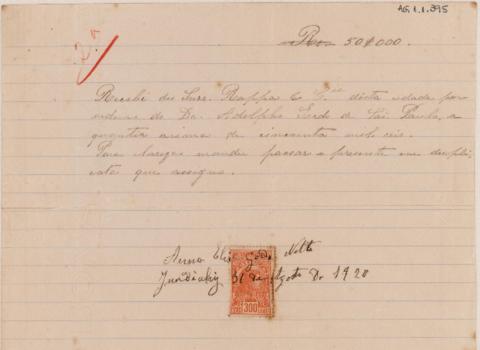 AG.1.1.395
2ª
Rs. 50$000.
Recebi dos Snrs. Rappa & Cia. desta cidade por
ordem do Dr. Adolpho Gordo de São Paulo, a
quantia acima de cincoenta mil reis.
Para clareza mandei passar o presente em dupli,
cata que assigno.
Anna Eliza Netto
Jundiahy 31 de Agosto De 1920
300